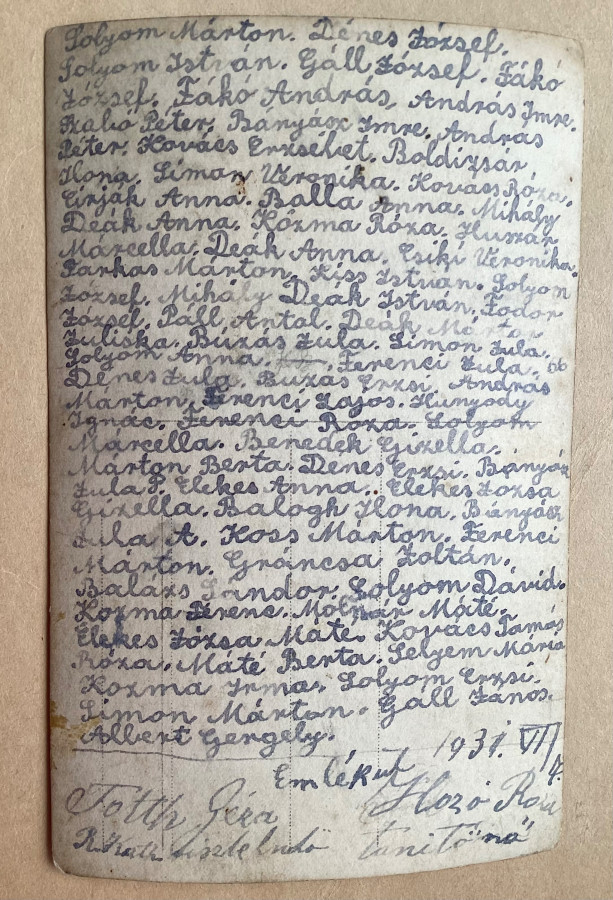 Solyom Márton. Dénes József.
Solyom István. Gáll József. Fákó
József. Fákó András, András Imre.
Szabó Péter. Bányász Imre. András
Péter. Kovács Erzsébet. Boldizsár
Ilona. Simon Veronika. Kovács Róza.
Cirják Anna. Balla Anna. Mihály
Deák Anna. Kozma Róza. Huszár
Marcella. Deák Anna. Csiki Veronika.
Farkas Márton. Kiss István. Solyom
József. Mihály Deák István. Fodor
József. Páll Antal. Deák Márton
Juliska. Buzás Jula. Simon Jula.
Solyom Anna. Ferenci Jula.
Dénes Jula. Buzás Erzsi. András
Márton. Ferenci Lajos. Hunyody
Ignác. Ferenci Róza. Solyom
Marcella. Benedek Gizella.
Márton Berta. Dénes Erzsi. Bányász
Jula P. Elekes Anna. Elekes Józsa
Gizella. Balogh Ilona. Bányász
Jula A. Koss Márton. Ferenci
Márton. Gráncsa Zoltán.
Balázs Sándor. Solyom Dávid.
Kozma Ferenc. Molnár Máté.
Elekes Józsa Máté. Kovács Tamás
Róza. Máté Berta. Selyem Mária
Kozma Irma. Solyom Erzsi.
Simon Márton. Gáll János.
Albert Gergely.
1931. VII
Emlékül
Tótth Géza
tanítónő